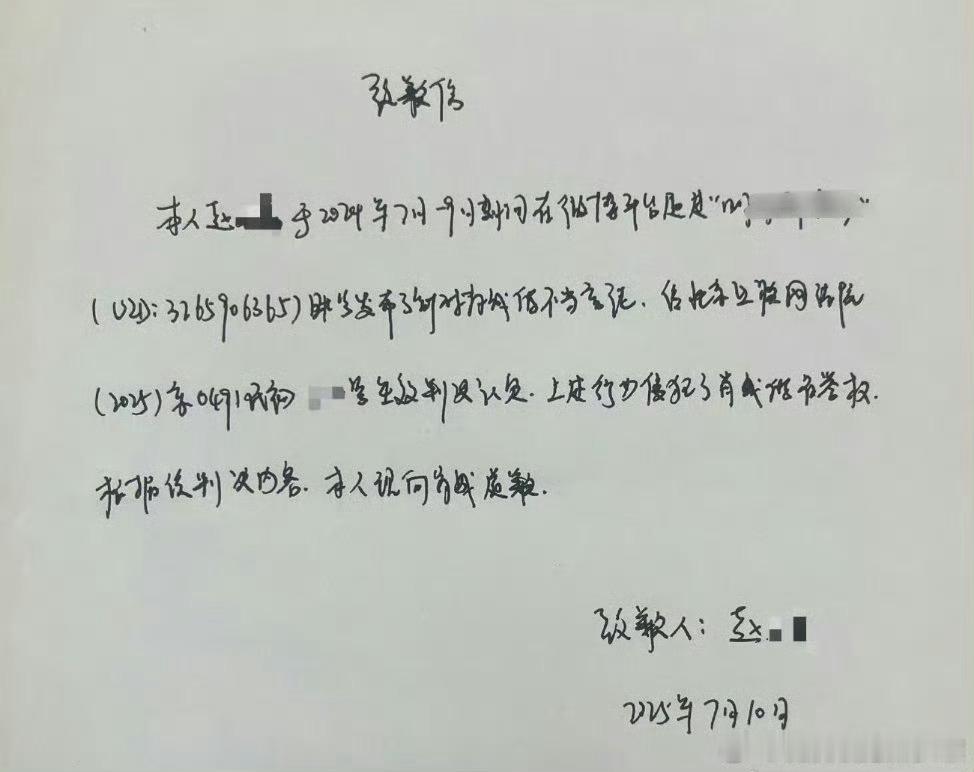 致歉信
本人赵 于2024年7月-9月期间在微博平台通过"
(UID:3265906365)账号发布了针对肖战的不当言论,经北京互联网法院
(2025)京0491民初 号生效判决认定,上述行为侵犯了肖战的名誉权.
根据该判决内容,本人现向肖战致歉.
致歉人:赵
2025年7月10日